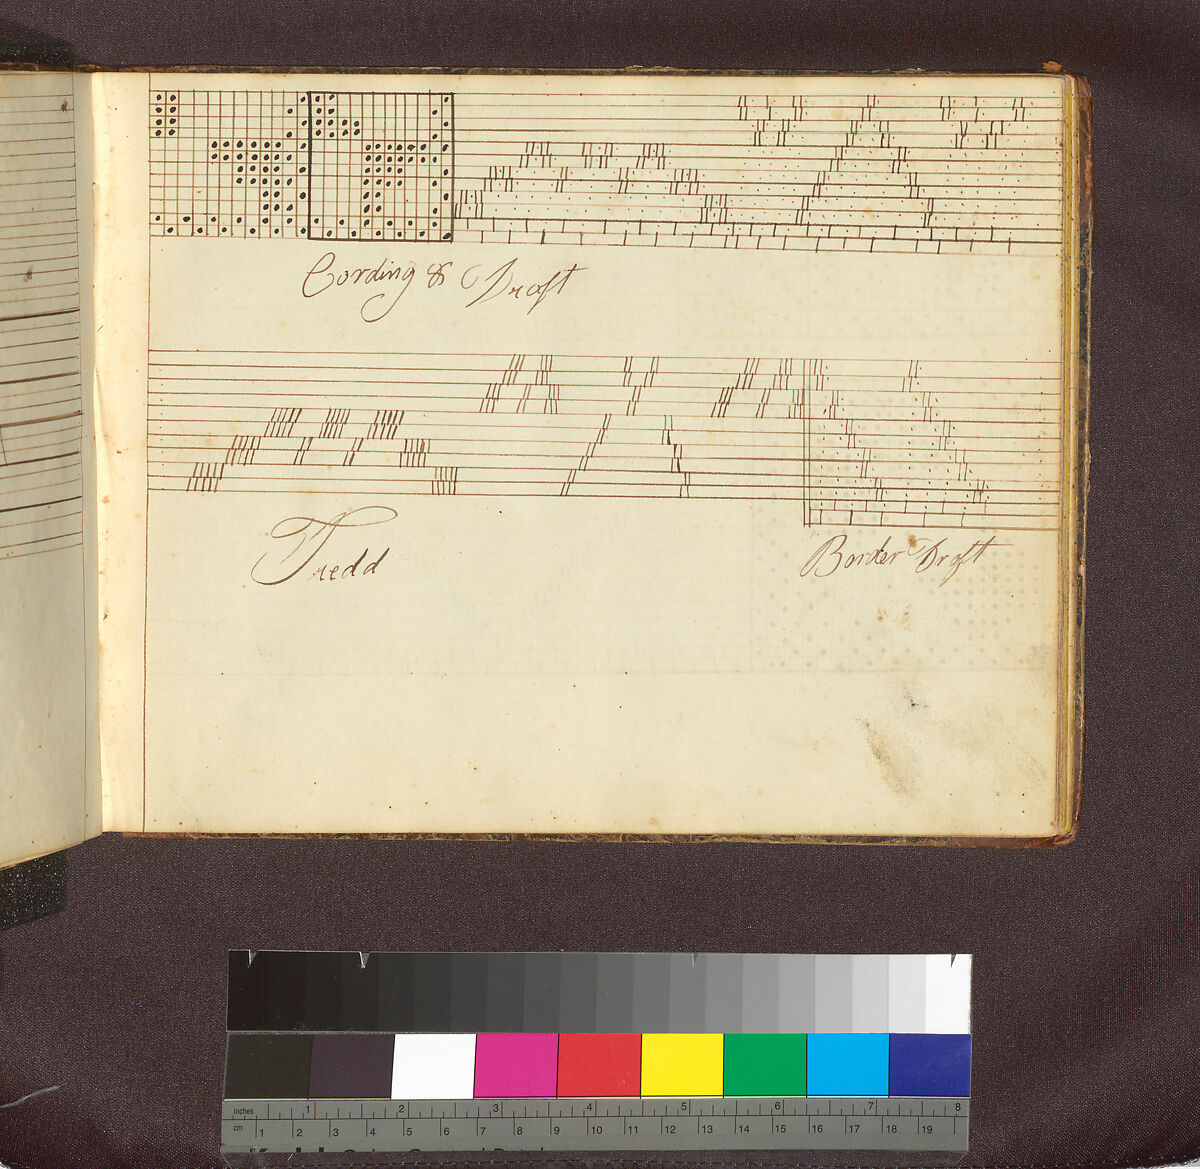 Cording & Draft
Tredd
Border Draft
Inches 1 2 3 4 5 6 7 8
cm 1 2 3 4 5 6 7 8 9 10 11 12 13 14 15 16 17 18 19